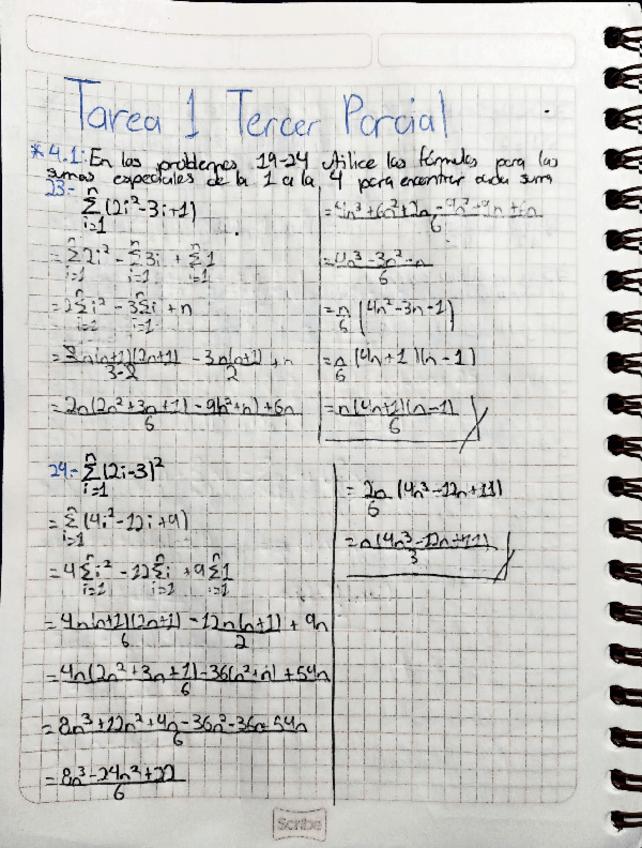 Tarea 1 Tercer Parcial
* 4.1: En los problemas 19-24 Utilice las fórmulas para las
sumas especiales de la 1 a la 4 para encontrar cada suma
23.-
n∑i=1 (2i²-3i+1)
= n∑i=1 2i² - n∑i=1 3i + n∑i=1 1
= 2 n∑i=1 i² - 3 n∑i=1 i + n
= 2n(n+1)(2n+1)/3·2 - 3n(n+1)/2 + n
= 2n(2n²+3n+1) - 9(n²+n) + 6n/6
= 4n³+6n²+2n-9n²+9n+6n/6
= 4n³-3n²-n/6
= n/6 (4n²-3n-1)
= n/6 (4n+1)(n-1)
= n(4n+1)(n-1)/6
24.- n∑i=1 (2i-3)²
= n∑i=1 (4i²-12i+9)
= 4 n∑i=1 i² - 12 n∑i=1 i + 9 n∑i=1 1
= 4n(n+1)(2n+1)/6 - 12n(n+1)/2 + 9n
= 4n(2n²+3n+1)-36(n²+n)+54n/6
= 8n³+12n²+4n-36n²-36n+54n/6
= 8n³-24n²+22/6
= 2n/6 (4n³-12n+11)
= n(4n³-12n+11)/3
Scribe